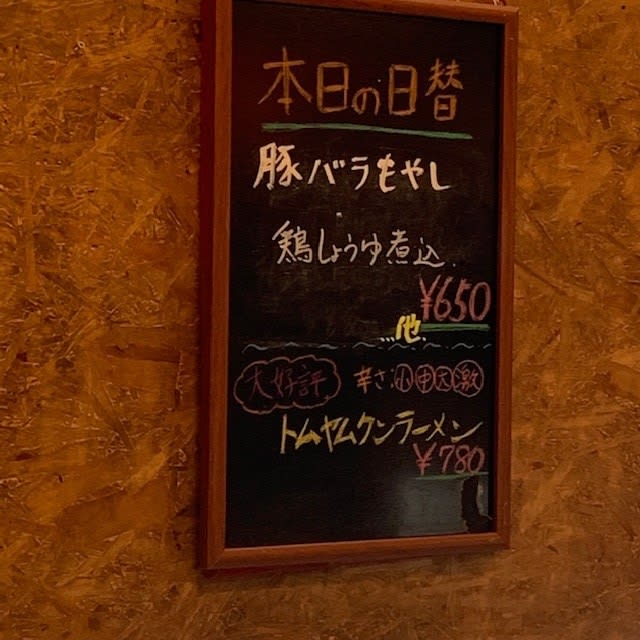 本日の日替
豚バラもやし
鶏しょうゆ煮込
¥650
...他
大好評 辛さ 小中大激
トムヤムクンラーメン
¥780